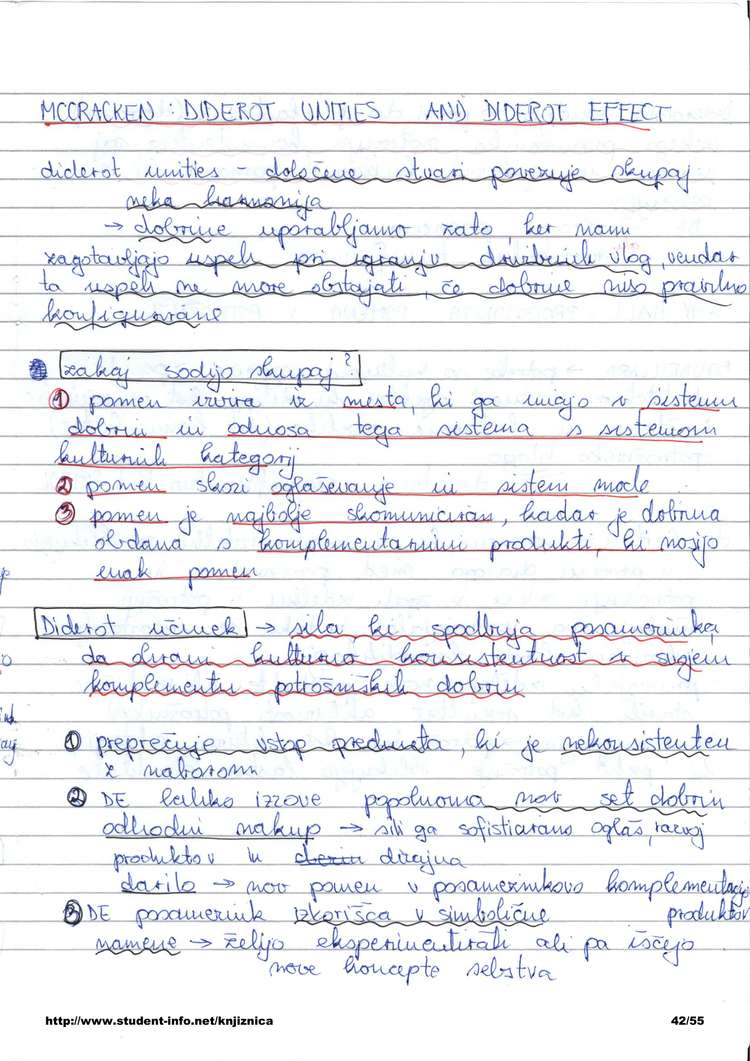 MCCRACKEN : DIDEROT UNITIES AND DIDEROT EFFECT
diderot unities - določene stvari povezuje skupaj
neka harmonija
→ dobrine uporabljamo zato, ker nam
zagotavljajo uspeh pri igranju družbenih vlog, vendar
ta uspeh ne more obstajati, če dobrine niso pravilno
konfigurirane
zakaj sodijo skupaj?
① pomen izvira iz mesta, ki ga imajo v sistemu
dobrin in odnosa tega sistema s sistemom
kulturnih kategorij
② pomen skozi oglaševanje in sistem mode
③ pomen je najbolje skomuniciran, kadar je dobrina
obdana s komplementarnimi produkti, ki nosijo
enak pomen
Diderot učinek → sila, ki spodbuja posameznika,
da ohrani kulturno konsistentnost v svojem
komplementu potrošniških dobrin
① preprečuje vstop predmeta, ki je nekonsistenten
z naborom
② DE lahko izzove popolnoma nov set dobrin
odhodni nakup → sili ga sofisticirano oglaš., razvoj
produktov in dizajna
darilo → nov pomen v posameznikovo komplementacijo
produktov
③ DE posameznik izkorišča v simbolične
namene → želijo eksperimentirati ali pa iščejo
nove koncepte sebstva
http://www.student-info.net/knjiznica
42/55